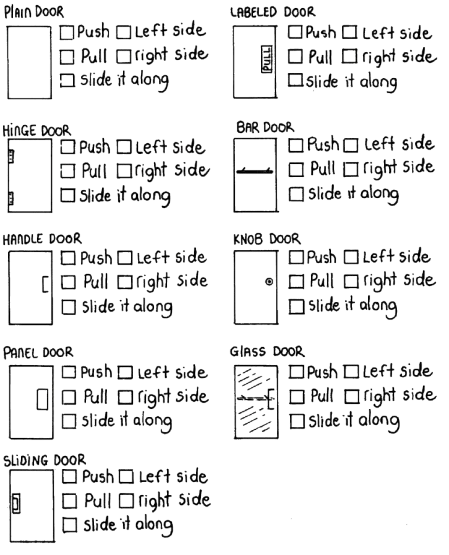 PLAIN DOOR
Push Left side
Pull right side
Slide it along
LABELED DOOR
PULL
Push Left side
Pull right side
Slide it along
HINGE DOOR
Push Left side
Pull right side
Slide it along
BAR DOOR
Push Left side
Pull right side
Slide it along
HANDLE DOOR
Push Left side
Pull right side
Slide it along
KNOB DOOR
Push Left side
Pull right side
Slide it along
PANEL DOOR
Push Left side
Pull right side
Slide it along
GLASS DOOR
Push Left side
Pull right side
Slide it along
SLIDING DOOR
Push Left side
Pull right side
Slide it along